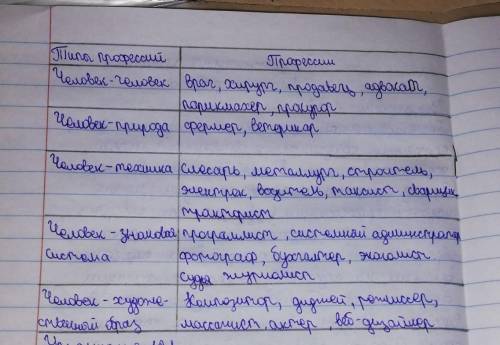 Типы профессий Профессии
Человек-человек врач, хирург, продавец, адвокат,
парикмахер, прокурор
Человек-природа фермер, ветеринар
Человек-техника слесарь, металлург, строитель,
электрик, водитель, таксист, сварщик
тракторист
Человек-знаковая программист, системный администратор
система фотограф, бухгалтер, экономист
судья журналист
Человек-художе- Композитор, диджей, режиссер,
ственный образ массажист, актер, веб-дизайнер